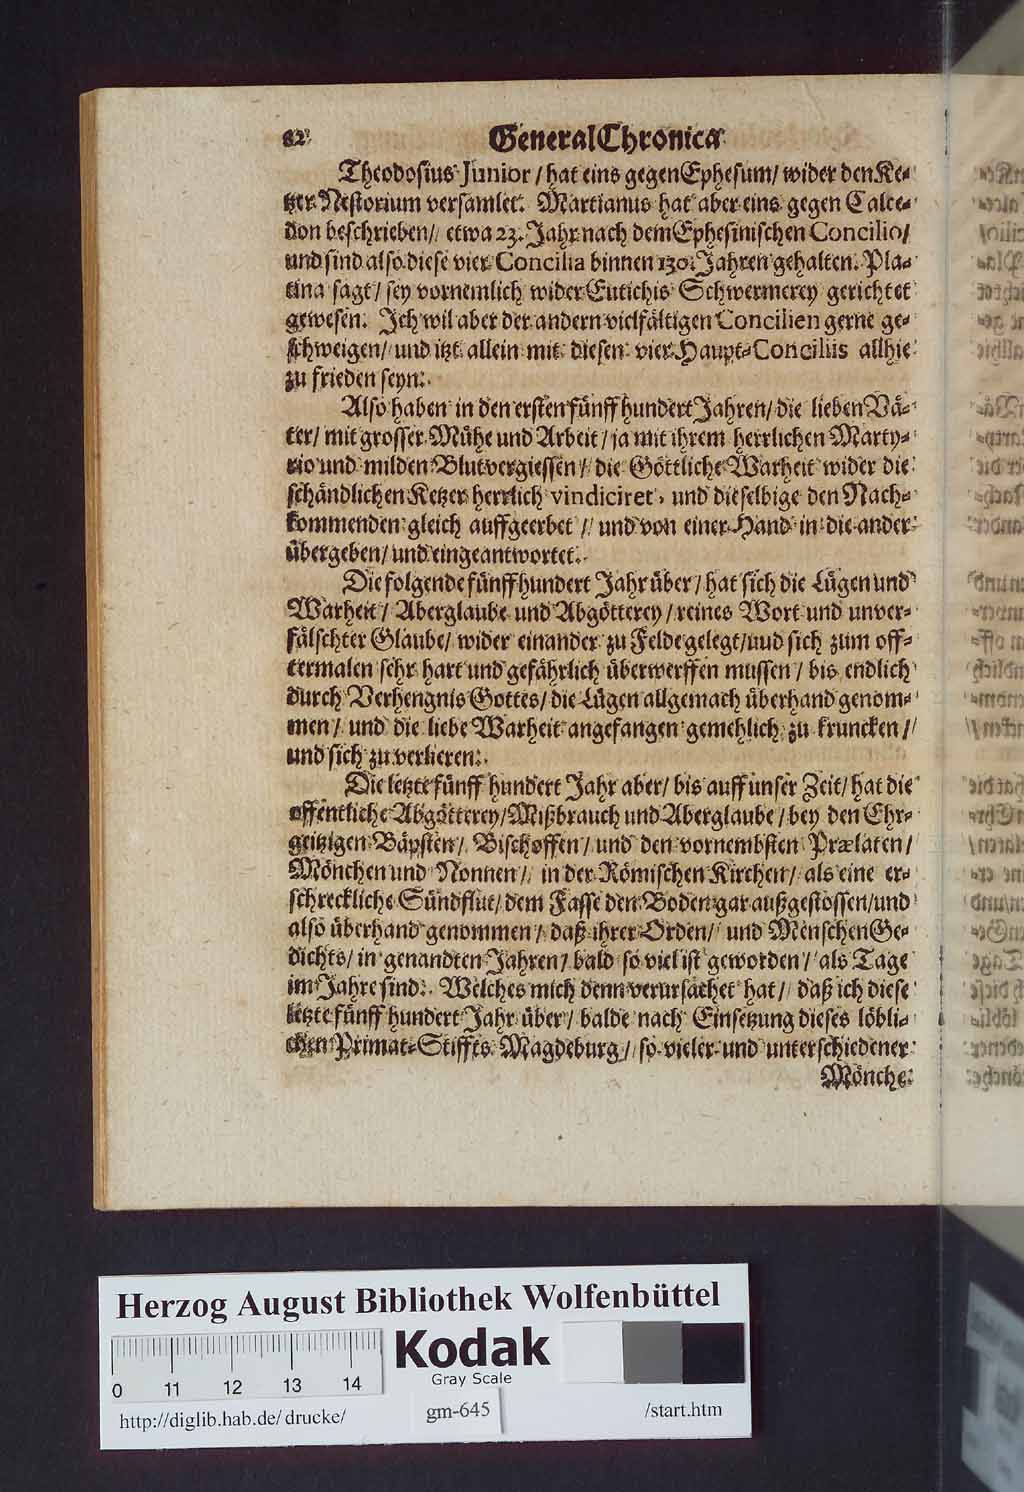 82 General Chronica
Theodosius Junior / hat eins gegen Ephesum / wider den Ke-
tzer Nestorium versamlet. Martianus hat aber eins gegen Calce-
don beschrieben / etwa 23. Jahr nach dem Ephesinischen Concilio /
und sind also diese vier Concilia binnen 130. Jahren gehalten. Pla-
tina sagt / sey vornemlich wider Eutichis Schwermerey gerichtet
gewesen. Ich wil aber der andern vielfältigen Concilien gerne ge-
schweigen / und itzt allein mit diesen vier Haupt-Conciliis allhie
zu frieden seyn.
Also haben in den ersten fünff hundert Jahren / die lieben Vä-
ter / mit grosser Mühe und Arbeit / ja mit ihrem herrlichen Marty-
rio und milden Blutvergiessen / die Göttliche Warheit wider die
schändlichen Ketzer herrlich vindiciret, und dieselbige den Nach-
kommenden gleich auffgeerbet / und von einer Hand in die ander
übergeben / und eingeantwortet.
Die folgende fünff hundert Jahr über / hat sich die Lügen und
Warheit / Aberglaube und Abgötterey / reines Wort und unver-
fälschter Glaube / wider einander zu Felde gelegt / uud sich zum off-
termalen sehr hart und gefährlich überwerffen mussen / bis endlich
durch Verhengnis Gottes / die Lügen allgemach überhand genom-
men / und die liebe Warheit angefangen gemehlich zu kruncken /
und sich zu verlieren.
Die letzte fünff hundert Jahr aber / bis auff unser Zeit / hat die
offentliche Abgötterey / Mißbrauch und Aberglaube / bey den Ehr-
geitzigen Bäpsten / Bischoffen / und den vornembsten Prælaten /
Mönchen und Nonnen / in der Römischen Kirchen / als eine er-
schreckliche Sündflut / dem Fasse den Boden gar außgestossen / und
also überhand genommen / daß ihrer Orden / und Menschen Ge-
dichts / in genandten Jahren / bald so viel ist geworden / als Tage
im Jahre sind. Welches mich denn verursachet hat / daß ich diese
letzte fünff hundert Jahr über / balde nach Einsetzung dieses löbli-
chen Primat-Stiffts Magdeburg / so vieler und unterschiedener
Mönche
Herzog August Bibliothek Wolfenbüttel
0 11 12 13 14
Kodak
Gray Scale
http://diglib.hab.de/drucke/ gm-645 /start.htm